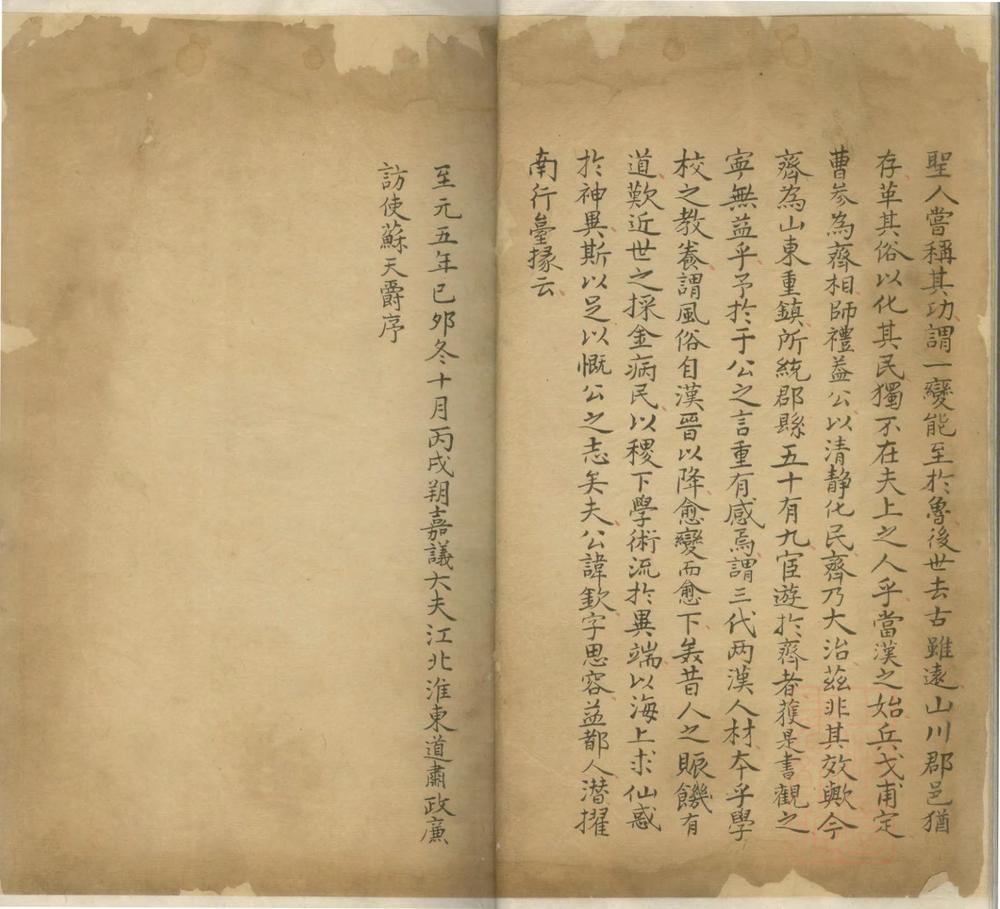 聖人嘗稱其功謂一變能至於魯後世去古雖遠山川郡邑猶
存革其俗以化其民獨不在夫上之人乎當漢之始兵戈甫定
曹參為齊相師禮蓋公以清靜化民齊乃大治茲非其效歟今
齊為山東重鎮所統郡縣五十有九宦遊於齊者獲是書觀之
寧無益乎予於于公之言重有感焉謂三代两漢人材本乎學
校之教養謂風俗自漢晉以降愈變而愈下美昔人之賑饑有
道歎近世之採金病民以稷下學術流於異端以海上求仙惑
於神異斯以足以慨公之志矣夫公諱欽字思容益都人潜擢
南行臺掾云
至元五年己卯冬十月丙戌朔嘉議大夫江北淮東道肅政廉
訪使蘇天爵序